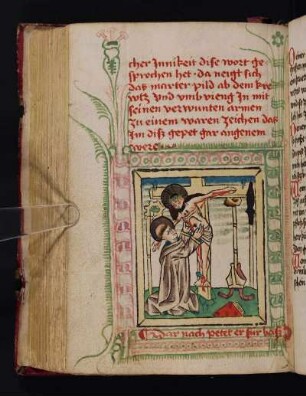 cher Innikeit dise wort ge
sprochen het · da neigt sich
das marter pild ab dem kre
wtz vnd vmb vieng In mit
seinen verwunten armen
zu einem waren zeichen das
Im disz gepet gar angenem
were
Dar nach petet er fur